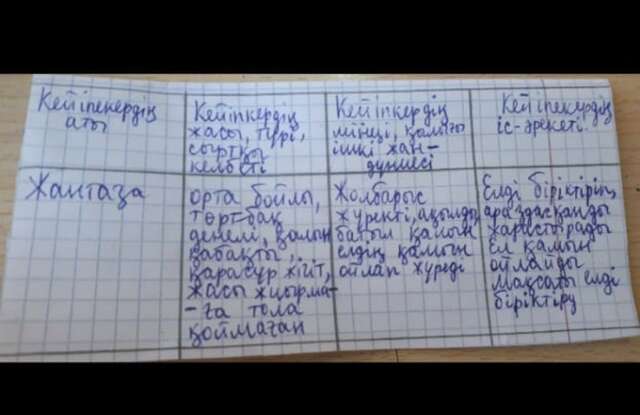 Кейіпекердің
аты
Кейіпкердің
жасы, түрі,
сыртқы
келбеті
Кейіпкердің
мінезі, қалыпы
ішкі жан-
дүниесі
Кейіпекердің
іс-әрекеті.
Жантаза
орта бойлы,
төртбақ
денелі, қалың
қабақты,
қарасұр жігіт,
жасы жиырма-
-ға тола
қоймаған
Жолбарыс
жүректі, ақылды,
батыл қалың
елдің қамын
ойлап жүреді
Елді біріктіріп,
араздасқанды
жарастырады
Ел қамын
ойлайды
Мақсаты елді
біріктіру